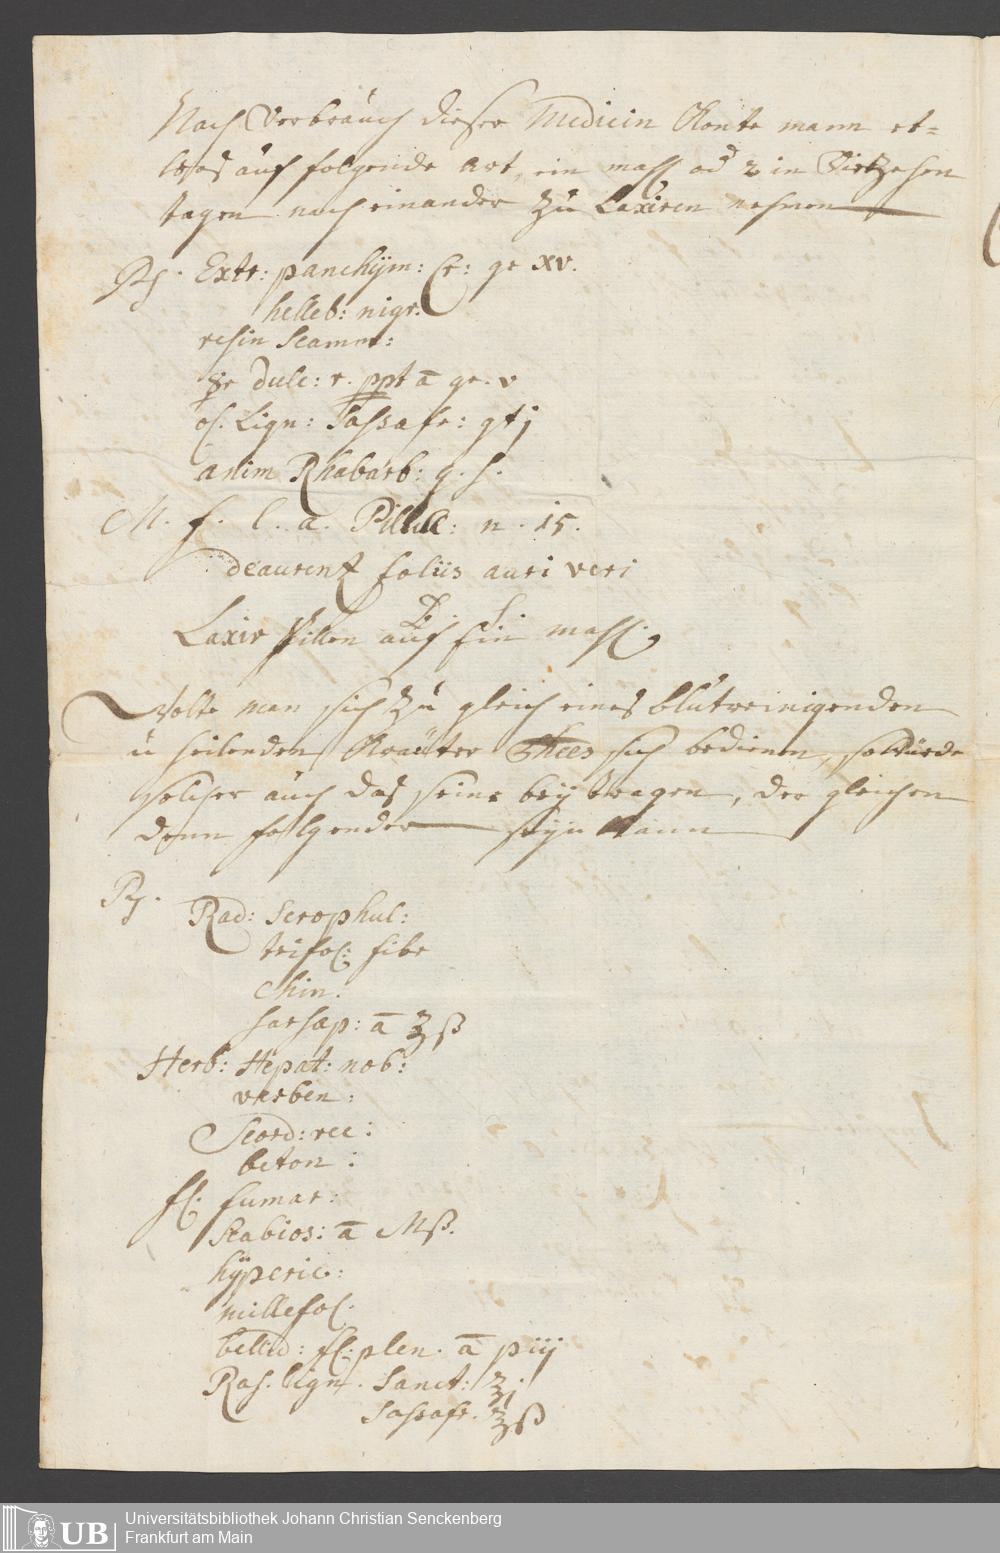 Nach Verbrauch dieser Medicin Konte mann et=
was auf folgende Art, ein mahl od 2 in Vierzehen
tagen nach einander zu Laxiren nehmen
Rx. Extr: panchÿm: Cr: gr xv.
helleb: nigr.
resin Scamm:
☿r dulc: r. ppt a gr. v
ol. Lign: Sassafr: gtj
anim Rhabarb: q. s.
M. f. l. a. Pillul: n. 15.
deaurent foliis auri veri
D. S.
Laxir Pillen auf Ein mahl.
Wolte man sich zu gleich eines blutreinigenden
u heilenden Kräuter Thees sich bedienen, so würde
solcher auch das seine beÿ tragen, der gleichen
denn folgender seÿn kann
Rx.
Rad: Scrophul:
trifol: fibr
Chin:
sarsap: a ʒß
Herb: Hepat: nob:
verben:
Scord: rec:
beton:
fl. fumar:
Scabios: a Mß.
hÿperic:
millefol.
bellid: fl: plen. a piij
Ras. lign. Sanct: ʒj
Sassafr. ʒß
UB
Universitätsbibliothek Johann Christian Senckenberg
Frankfurt am Main